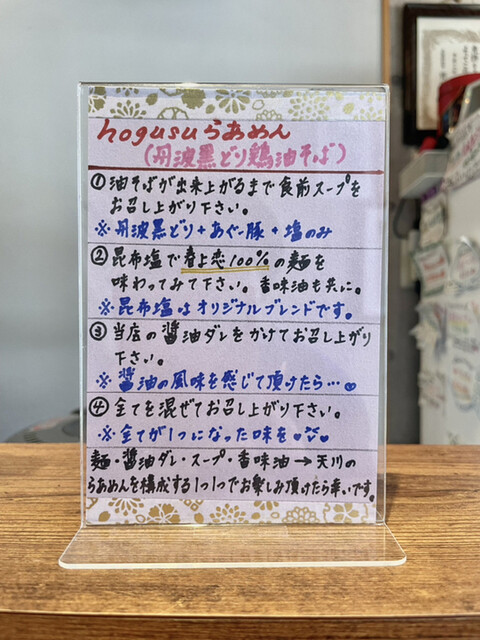 hogusuらあめん
(丹波黒どり鶏油そば)
①油そばが出来上がるまで食前スープを
お召し上がり下さい。
※丹波黒どり+あぐー豚+塩のみ
②昆布塩で春よ恋100%の麺を
味わってみて下さい。香味油も共に。
※昆布塩はオリジナルブレンドです。
③当店の醤油ダレをかけてお召し上がり
下さい。
※醤油の風味を感じて頂けたら…
④全てを混ぜてお召し上がり下さい。
※全てが1つになった味を
麺・醤油ダレ・スープ・香味油→天川の
らあめんを構成する1つ1つでお楽しみ頂けたら幸いです。